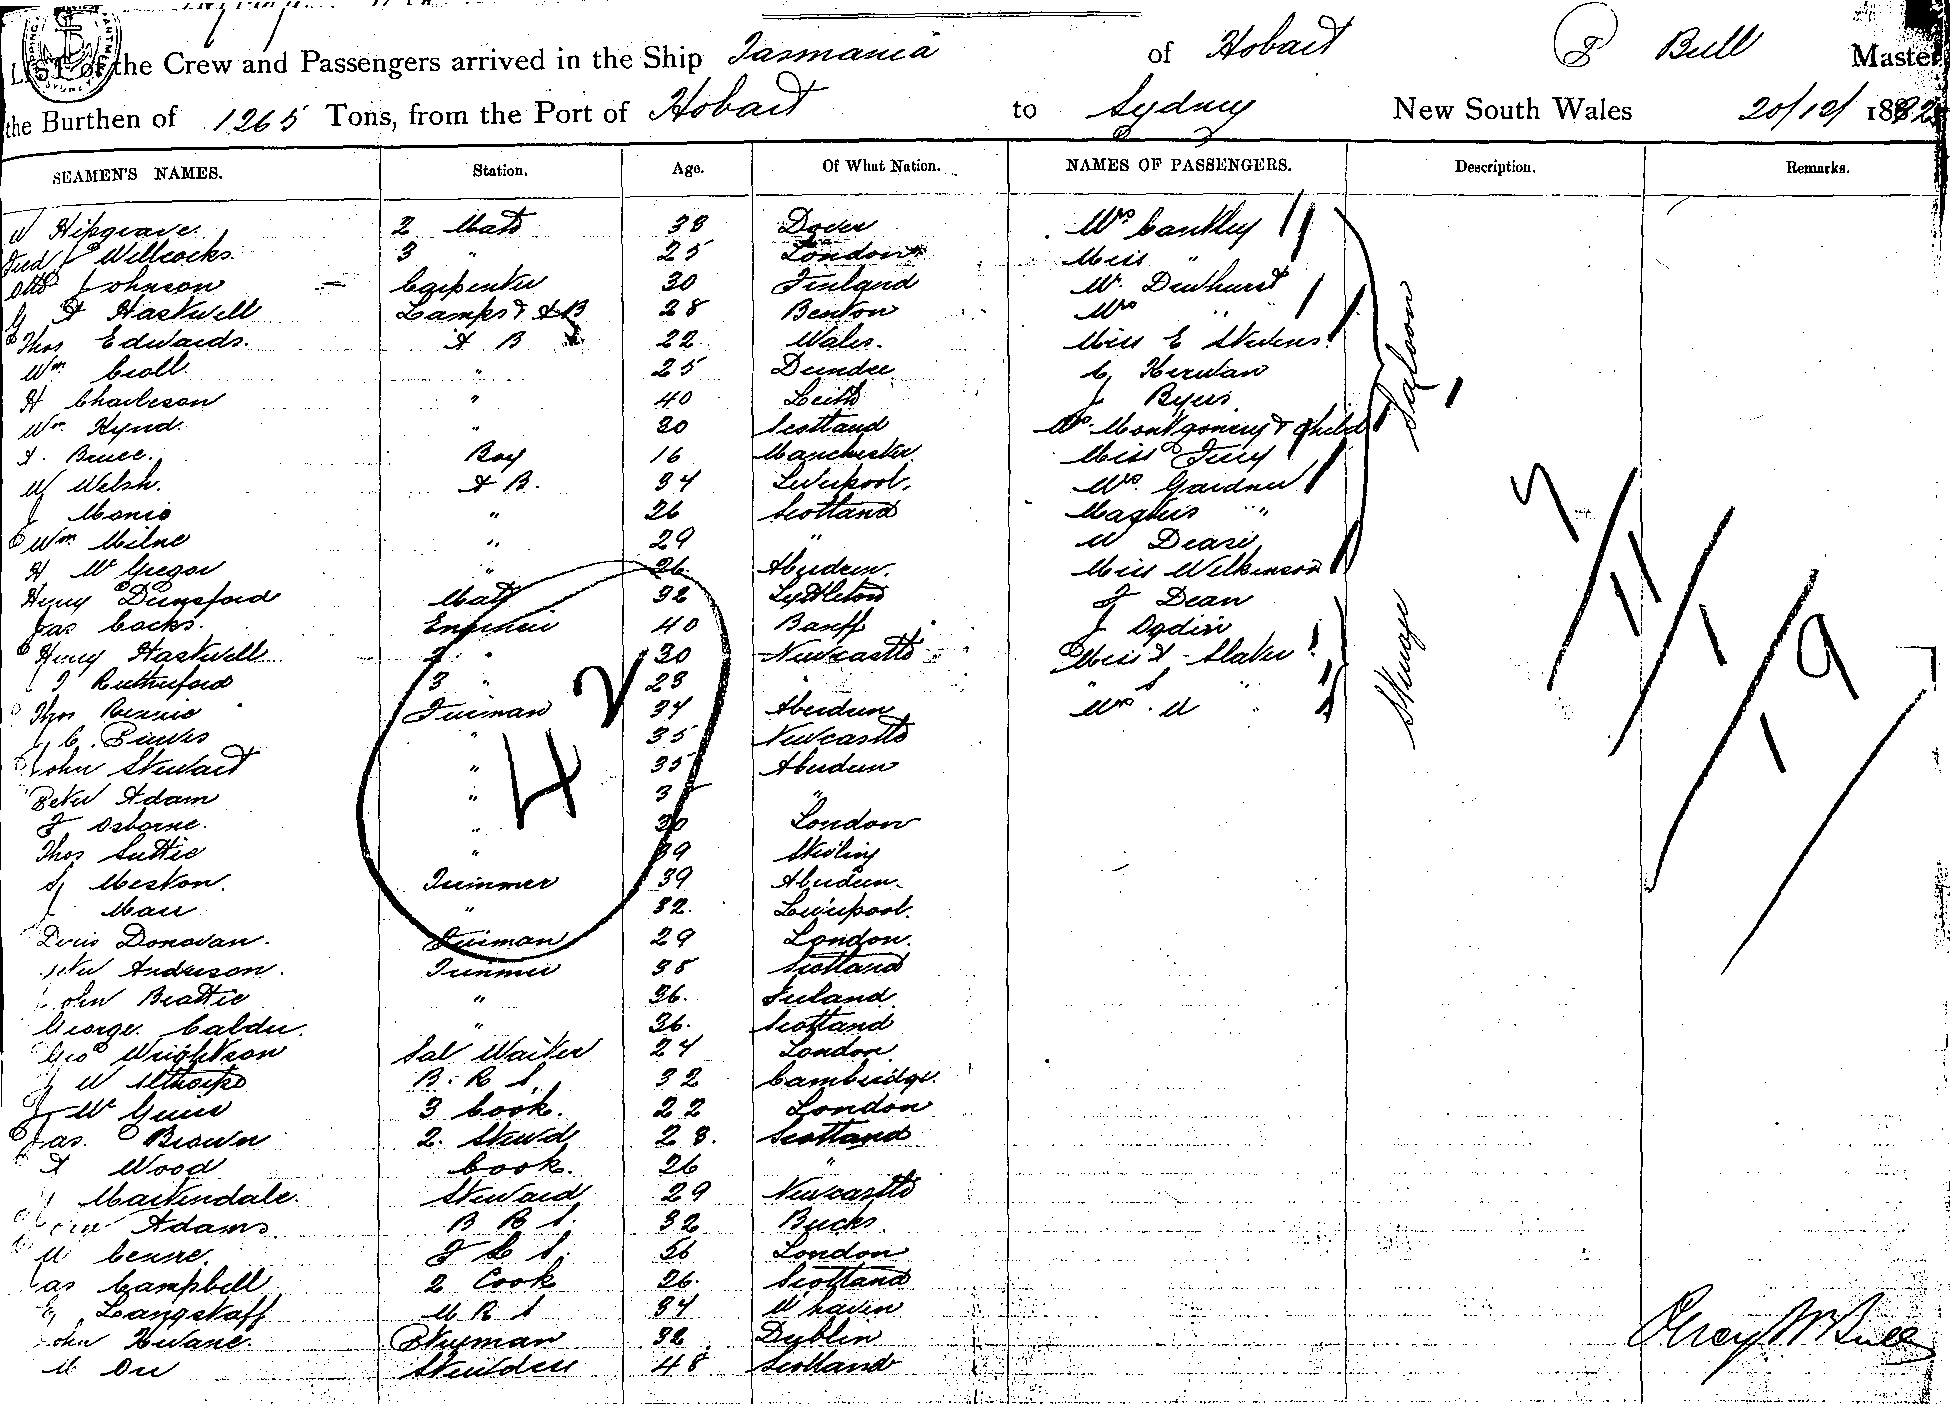 LIST of the Crew and Passengers arrived in the Ship Tasmania of Hobart Bull Master
the Burthen of 1265 Tons, from the Port of Hobart to Sydney New South Wales 20/12/1882
SEAMEN'S NAMES. Station. Age. Of What Nation. NAMES OF PASSENGERS. Description. Remarks.
W Hipgrave 2 Mate 38 Dover Mrs Cankley
Fred Willcocks 3 " 25 London Miss "
Otto Johnson Carpenter 30 Finland W. Dewhurst
A Haswell Lamps & AB 28 Benton Mrs "
Thos Edwards. A B 22 Wales. Miss E Stevens
Wm Croll " 25 Dundee Kirwan
H Charleson " 40 Leith J Byers
Wm Hynd. " 20 Scotland Mrs Montgomery & Child
A. Bruce. Boy 16 Manchester Miss Frey
W Welsh. A B. 34 Liverpool. Mrs. Gardner
J " 26 Scotland "
Wm Milne " 29 " W Dease
H McGregor " 26. Aberdeen. Miss Wilkinson
Henry Dunsford Mate 32 Lyttleton J Dean
Jas Cocks. Engineer 40 Banff J Ogden
Henry Haswell 2 " 30 Newcastle Miss A Slater
J Rutherford 3 " 23 "
Thos Rennie Fireman 34 Aberdeen Mrs. W "
J C. " 35 Newcastle
John Stewart " 35 Aberdeen
Peter Adam " 3 "
F Osborne. " 30 London
Thos Suttie " 39 Stirling
J Meston. Trimmer 39 Aberdeen.
J Mair " 32. Liverpool.
Donovan. Fireman 29 London.
Peter Anderson. Trimmer 38 Scotland
John Beattie " 36. Ireland
George Calder. " 36. Scotland
Geo Wrightson Sal Waiter 24 London
J W Althorpe B. R S. 32 Cambridge.
J Mc 3 Cook. 22 London
Jas. Brown 2. Stewd 28. Scotland
A Wood Cook. 26 "
J Martindale. Steward 29 Newcastle
Adams. B R S. 32 Bucks.
W F C S. 56 London
Jas Campbell 2 Cook 26. Scotland
G Langstaff M R S 34 W haven
John Kirvane. Storeman 32 Dublin
M Orr Stewdess 48 Scotland
Saloon
Steerage
42